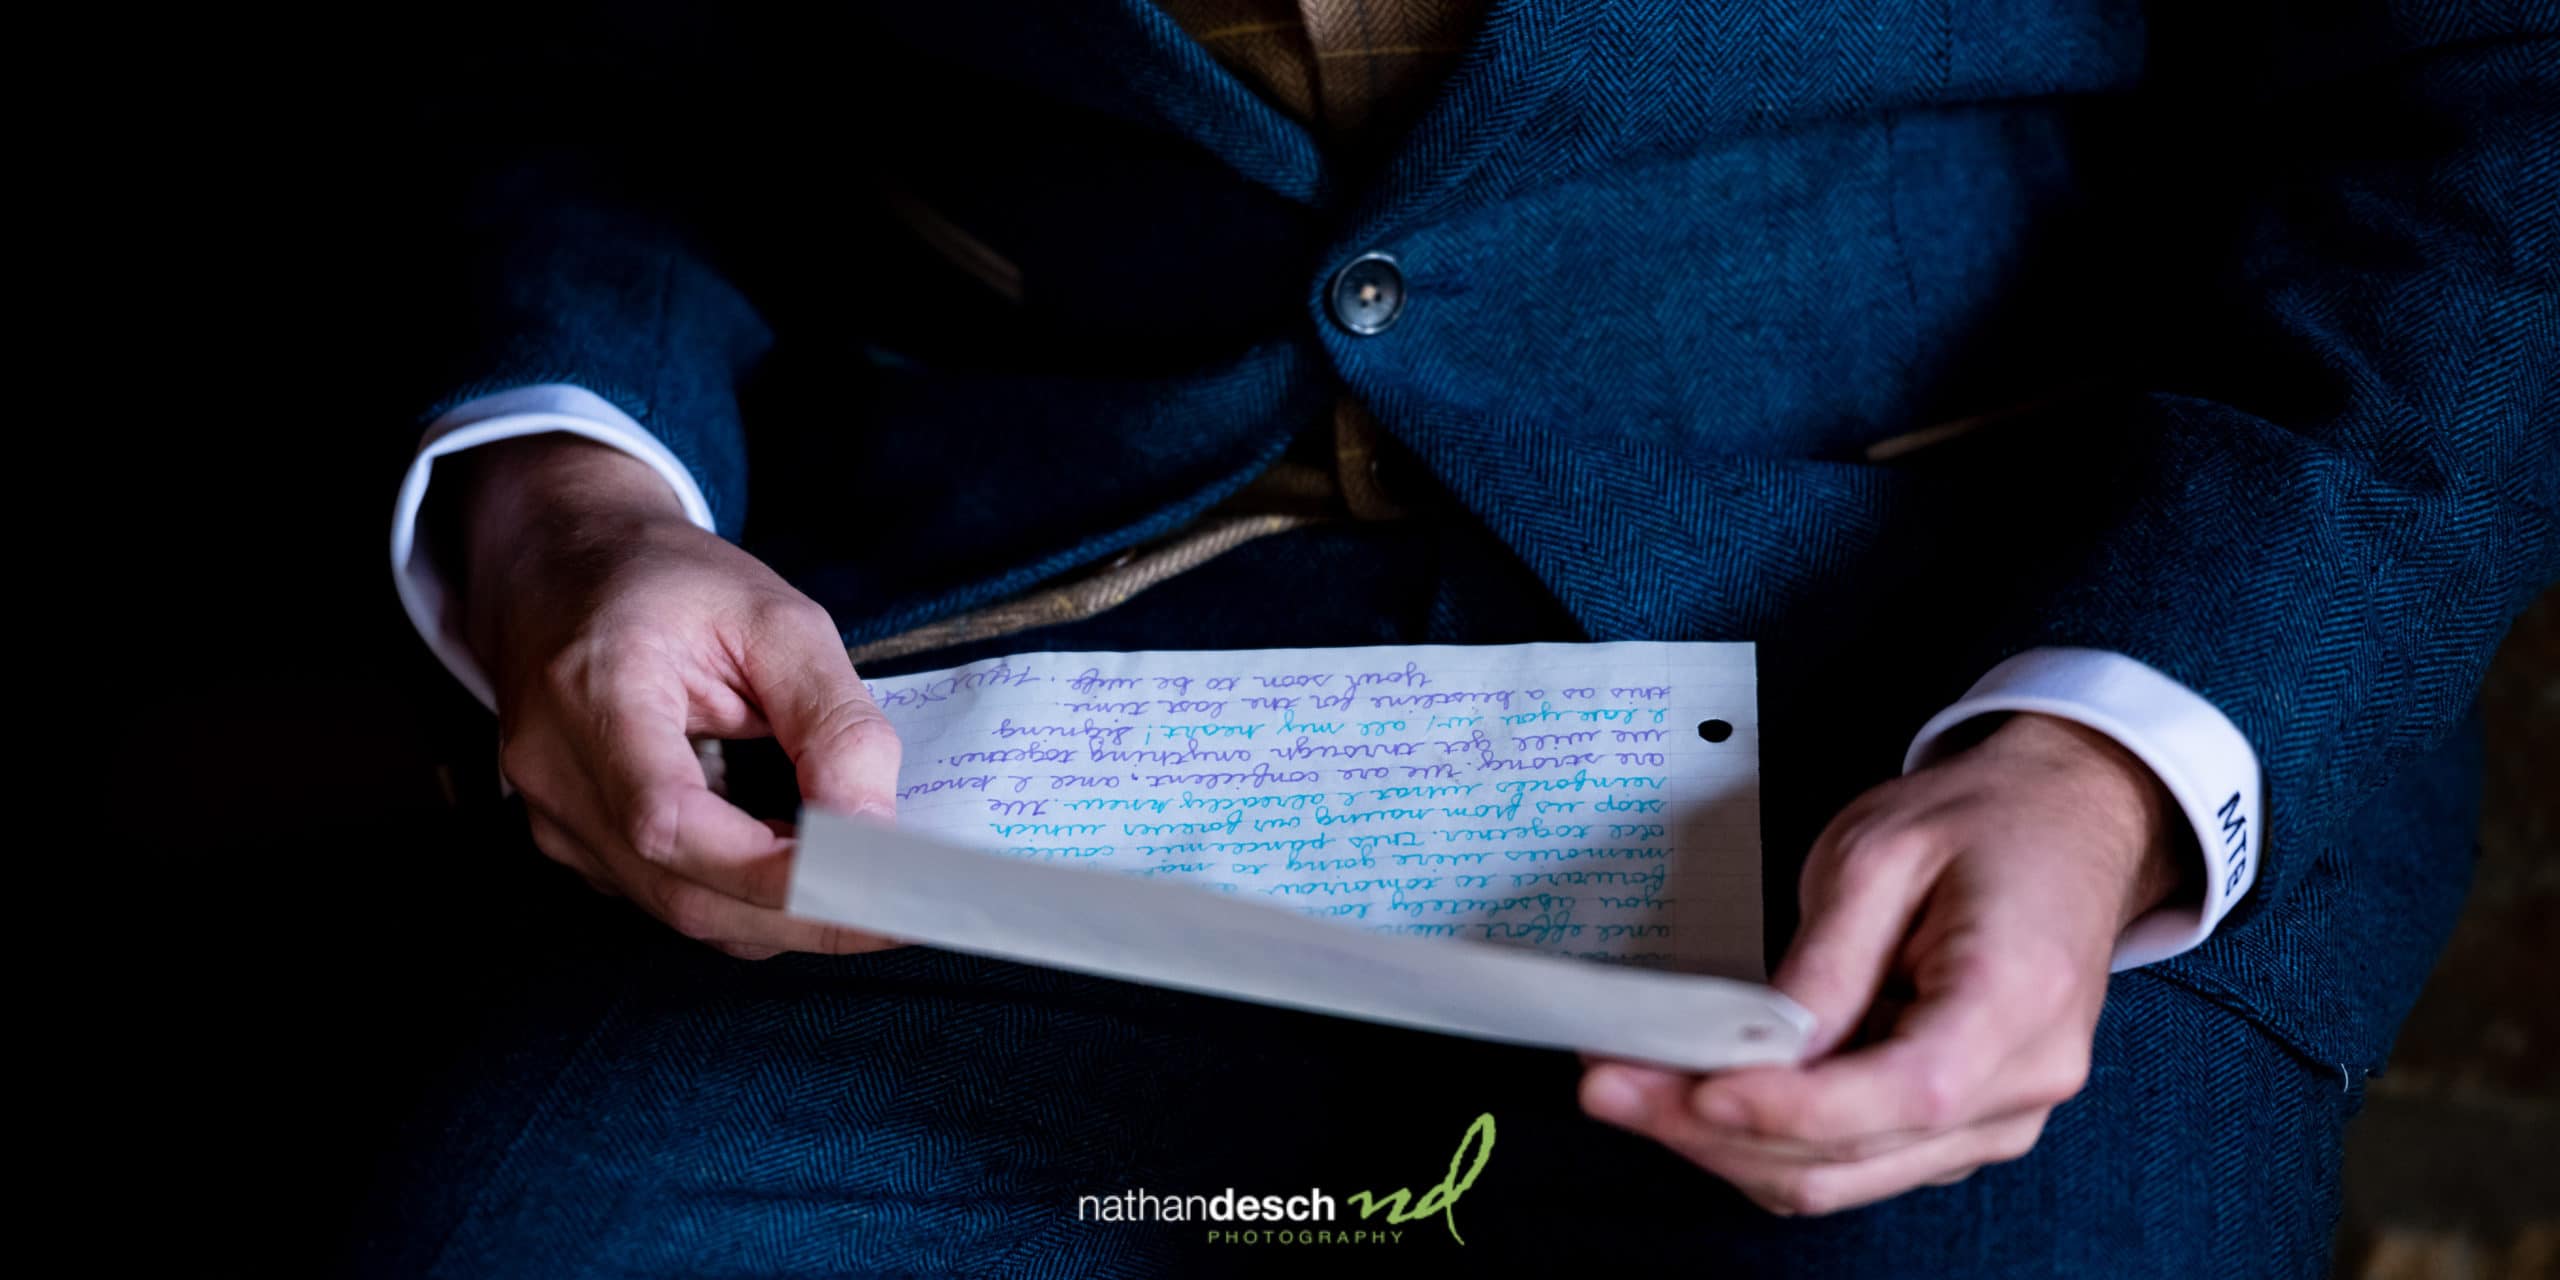 and effort
you absolutely
forward to tomorrow
memories were going to
all together. This pandemic
stop us from having our forever which
reinforces what I already knew. We
are strong, we are confident, and I know
we will get through anything together.
I love you w/ all my heart! Signing
this as a for the last time.
your soon to be wife.
MTB
nathandesch nd
PHOTOGRAPHY